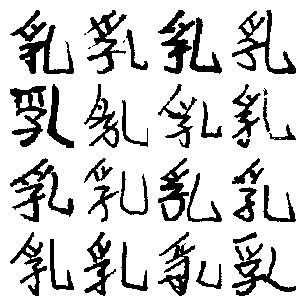 乳乳乳乳
乳乳乳乳
乳乳乳乳
乳乳乳乳